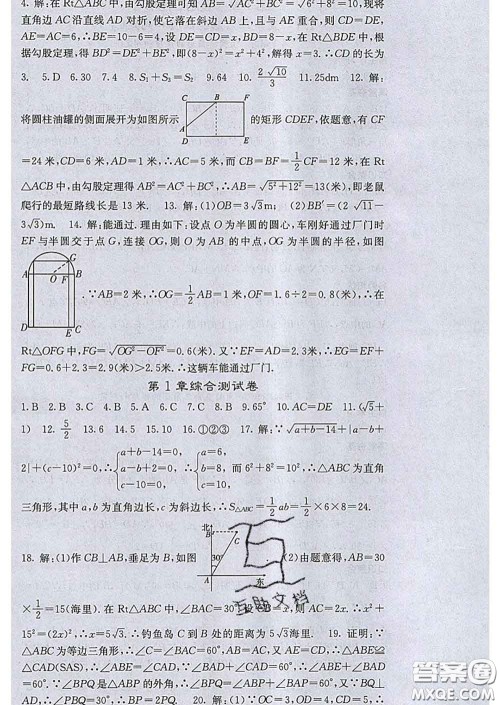 4. 解:在 Rt△ABC 中,由勾股定理可知 AB=√AC²+BC²=√6²+8²=10,现将
直角边 AC 沿直线 AD 对折,使它落在斜边 AB 上,且与 AE 重合,则 CD=DE,
AE=AC=6,∴BE=10-6=4,设 DE=CD=x,BD=8-x,在 Rt△BDE 中,根
据勾股定理得 BD²=DE²+BE²,即(8-x)²=x²+4²,解得 x=3.∴CD 的长为
3. 5.D 6.30 7.4 8.S₁+S₂=S₃ 9.64 10.2√10/3 11.25dm 12.解:
C B F
将圆柱油罐的侧面展开为如图所示 的矩形 CDEF,依题意,有 CF
A
D E
=24 米,CD=6 米,AD=1 米,∴AC=5 米,而 CB=BF=1/2CF=12 米,在 Rt
△ACB 中,由勾股定理得 AB²=AC²+BC²,∴AB=√5²+12²=13(米),即老鼠
爬行的最短路线长是 13 米. 13.解:(1)OB=3√3m; (2)BB′=OB′-OB=(3√7-
3√3)m. 14.解:能通过.理由如下:设点 O 为半圆的圆心,车刚好通过厂门时
EF 与半圆交于点 G,连接 OG,则 O 为 AB 的中点,OG 为半圆的半径,如图
G
A O F B
D E C
.∵AB=2 米,∴OG=1/2AB=1 米,OF=1.6÷2=0.8(米),∴在
Rt△OFG 中,FG=√OG²-OF²=0.6(米).又∵EF=AD=2.3米,∴EG=EF
+FG=0.6+2.3=2.9(米)>2.5米.∴这辆车能通过厂门.
第 1 章综合测试卷
1.B 2.B 3.C 4.A 5.D 6.A 7.B 8.B 9.65° 10.AC=DE 11.(√5+
1) 12.5/2 13.6 14.5 15.10 16.①②③ 17.解:∵√a+b-14+|a-b-
2|+(c-10)²=0,∴{a+b-14=0, a-b-2=0, c-10=0, ∴{a=8, b=6, c=10, ∵6²+8²=10²,∴△ABC 为直角
三角形,其中 a,b 为直角边长,c 为斜边长,∴S△ABC=1/2ab=1/2×6×8=24.
北 B
C
18.解:(1)作 CB⊥AB,垂足为 B,如图 30° (2)由题意得,AB=30
A 东
×1/2=15(海里).在 Rt△ABC 中,∠BAC=30° 设 BC=x,则 AC=2x.∴x²+
15²=(2x)²,∴x=5√3.∴钓鱼岛 C 到 B 处的距离为 5√3海里. 19.证明:
∵△ABC为等边三角形,∴∠BAC=∠C=60°,AB=AC.又∵AE=CD,∴△ABE≌
△CAD(SAS),∴∠ABE=∠CAD,∴∠BAD+∠ABE=∠BAD+∠CAD=∠BAE
=60°.∵∠BPQ 是△ABP 的外角,∴∠BPQ=∠BAD+∠ABE=60°.又∵BQ⊥
AD,∴∠PBQ=30°.∴BP=2PQ. 20.解:(1)∵OC=3,OA=4,CD=5,∴
互助文档
答案圈
MXQE.COM